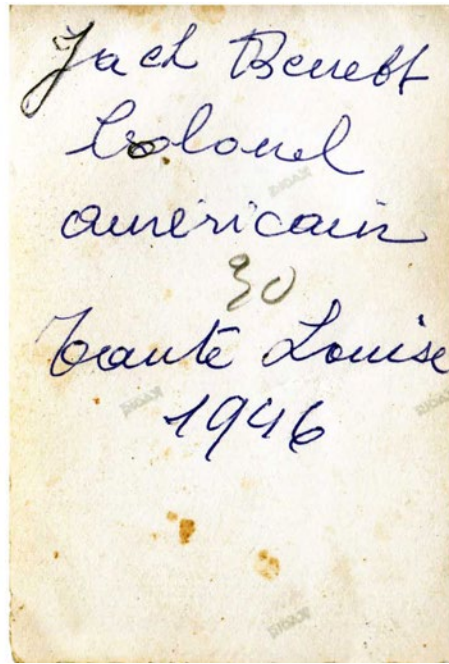 Jack Benett
Colonel
américain
30
tante Louise
1946